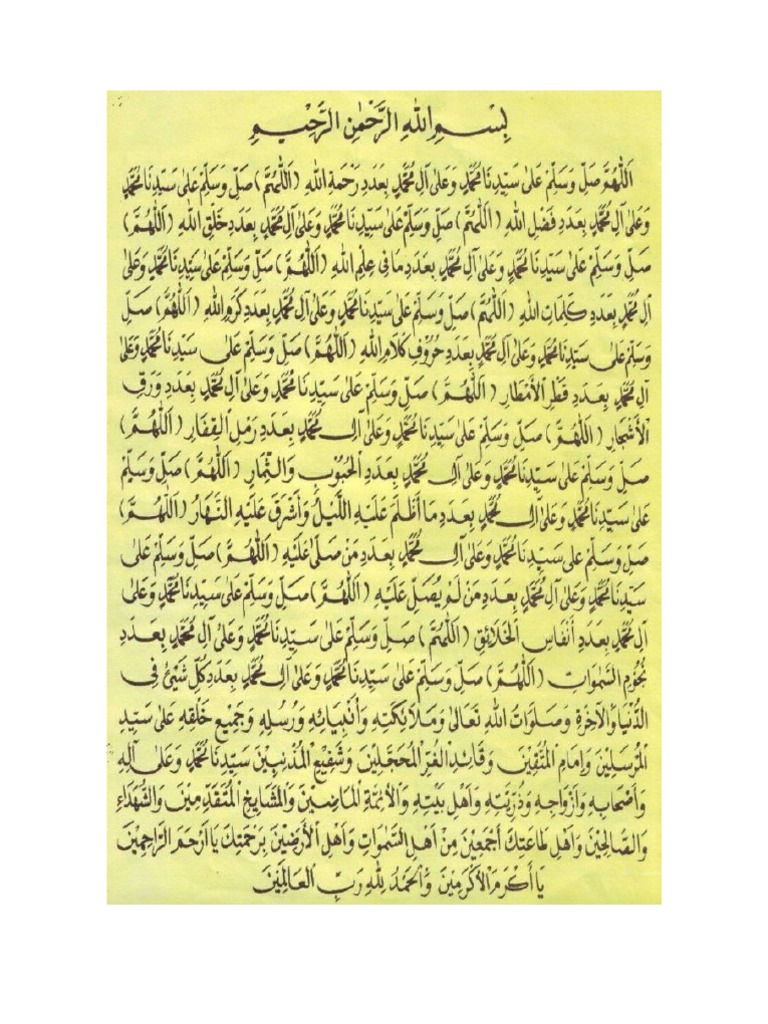 بِسْمِ اللهِ الرَّحْمٰنِ الرَّحِيْمِ
اَللّٰهُمَّ صَلِّ وَسَلِّمْ عَلىٰ سَيِّدِنَا مُحَمَّدٍ وَعَلىٰ آلِ مُحَمَّدٍ بِعَدَدِ رَحْمَةِ اللهِ (اَللّٰهُمَّ) صَلِّ وَسَلِّمْ عَلىٰ سَيِّدِنَا مُحَمَّدٍ
وَعَلىٰ آلِ مُحَمَّدٍ بِعَدَدِ فَضْلِ اللهِ (اَللّٰهُمَّ) صَلِّ وَسَلِّمْ عَلىٰ سَيِّدِنَا مُحَمَّدٍ وَعَلىٰ آلِ مُحَمَّدٍ بِعَدَدِ خَلْقِ اللهِ (اَللّٰهُمَّ)
صَلِّ وَسَلِّمْ عَلىٰ سَيِّدِنَا مُحَمَّدٍ وَعَلىٰ آلِ مُحَمَّدٍ بِعَدَدِ مَا فِى عِلْمِ اللهِ (اَللّٰهُمَّ) صَلِّ وَسَلِّمْ عَلىٰ سَيِّدِنَا مُحَمَّدٍ وَعَلىٰ
آلِ مُحَمَّدٍ بِعَدَدِ كَلِمَاتِ اللهِ (اَللّٰهُمَّ) صَلِّ وَسَلِّمْ عَلىٰ سَيِّدِنَا مُحَمَّدٍ وَعَلىٰ آلِ مُحَمَّدٍ بِعَدَدِ كَرَمِ اللهِ (اَللّٰهُمَّ) صَلِّ
وَسَلِّمْ عَلىٰ سَيِّدِنَا مُحَمَّدٍ وَعَلىٰ آلِ مُحَمَّدٍ بِعَدَدِ حُرُوْفِ كَلَامِ اللهِ (اَللّٰهُمَّ) صَلِّ وَسَلِّمْ عَلىٰ سَيِّدِنَا مُحَمَّدٍ وَعَلىٰ
آلِ مُحَمَّدٍ بِعَدَدِ قَطْرِ الْأَمْطَارِ (اَللّٰهُمَّ) صَلِّ وَسَلِّمْ عَلىٰ سَيِّدِنَا مُحَمَّدٍ وَعَلىٰ آلِ مُحَمَّدٍ بِعَدَدِ وَرَقِ
الْأَشْجَارِ (اَللّٰهُمَّ) صَلِّ وَسَلِّمْ عَلىٰ سَيِّدِنَا مُحَمَّدٍ وَعَلىٰ آلِ مُحَمَّدٍ بِعَدَدِ رَمْلِ الْقِفَارِ (اَللّٰهُمَّ)
صَلِّ وَسَلِّمْ عَلىٰ سَيِّدِنَا مُحَمَّدٍ وَعَلىٰ آلِ مُحَمَّدٍ بِعَدَدِ الْحُبُوْبِ وَالثِّمَارِ (اَللّٰهُمَّ) صَلِّ وَسَلِّمْ
عَلىٰ سَيِّدِنَا مُحَمَّدٍ وَعَلىٰ آلِ مُحَمَّدٍ بِعَدَدِ مَا أَظْلَمَ عَلَيْهِ اللَّيْلُ وَأَشْرَقَ عَلَيْهِ النَّهَارُ (اَللّٰهُمَّ)
صَلِّ وَسَلِّمْ عَلىٰ سَيِّدِنَا مُحَمَّدٍ وَعَلىٰ آلِ مُحَمَّدٍ بِعَدَدِ مَنْ صَلّىٰ عَلَيْهِ (اَللّٰهُمَّ) صَلِّ وَسَلِّمْ عَلىٰ
سَيِّدِنَا مُحَمَّدٍ وَعَلىٰ آلِ مُحَمَّدٍ بِعَدَدِ مَنْ لَمْ يُصَلِّ عَلَيْهِ (اَللّٰهُمَّ) صَلِّ وَسَلِّمْ عَلىٰ سَيِّدِنَا مُحَمَّدٍ وَعَلىٰ
آلِ مُحَمَّدٍ بِعَدَدِ أَنْفَاسِ الْخَلَائِقِ (اَللّٰهُمَّ) صَلِّ وَسَلِّمْ عَلىٰ سَيِّدِنَا مُحَمَّدٍ وَعَلىٰ آلِ مُحَمَّدٍ بِعَدَدِ
نُجُوْمِ السَّمٰوَاتِ (اَللّٰهُمَّ) صَلِّ وَسَلِّمْ عَلىٰ سَيِّدِنَا مُحَمَّدٍ وَعَلىٰ آلِ مُحَمَّدٍ بِعَدَدِ كُلِّ شَيْئٍ فِى
الدُّنْيَا وَالْآخِرَةِ وَصَلَوَاتُ اللهِ تَعَالىٰ وَمَلَائِكَتِهِ وَأَنْبِيَائِهِ وَرُسُلِهِ وَجَمِيْعِ خَلْقِهِ عَلىٰ سَيِّدِ
الْمُرْسَلِيْنَ وَإِمَامِ الْمُتَّقِيْنَ وَقَائِدِ الْغُرِّ الْمُحَجَّلِيْنَ وَشَفِيْعِ الْمُذْنِبِيْنَ سَيِّدِنَا مُحَمَّدٍ وَعَلىٰ آلِهِ
وَأَصْحَابِهِ وَأَزْوَاجِهِ وَذُرِّيَّتِهِ وَأَهْلِ بَيْتِهِ وَالْأَئِمَّةِ الْمَاضِيْنَ وَالْمَشَايِخِ الْمُتَقَدِّمِيْنَ وَالشُّهَدَاءِ
وَالصَّالِحِيْنَ وَأَهْلِ طَاعَتِكَ أَجْمَعِيْنَ مِنْ أَهْلِ السَّمٰوَاتِ وَأَهْلِ الْأَرَضِيْنَ بِرَحْمَتِكَ يَا أَرْحَمَ الرَّاحِمِيْنَ
يَا أَكْرَمَ الْأَكْرَمِيْنَ وَالْحَمْدُ لِلّٰهِ رَبِّ الْعَالَمِيْنَ